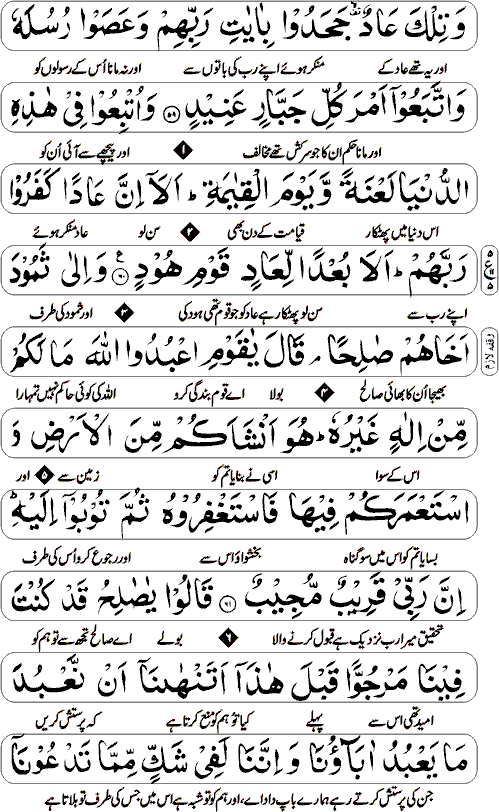 وَتِلْكَ عَادٌ جَحَدُوْا بِاٰيٰتِ رَبِّهِمْ وَعَصَوْا رُسُلَهٗ
اور یہ تھے عاد کے منکر ہوئے اپنے رب کی باتوں سے اور نہ مانا اُس کے رسولوں کو
وَاتَّبَعُوْٓا اَمْرَ كُلِّ جَبَّارٍ عَنِيْدٍ ﴿۵۹﴾ وَاُتْبِعُوْا فِيْ هٰذِهِ
اور مانا حکم ان کا جو سرکش تھے مخالف ۱ اور پیچھے سے آئی اُن کو
الدُّنْيَا لَعْنَةً وَّيَوْمَ الْقِيٰمَةِ ؕ اَلَآ اِنَّ عَادًا كَفَرُوْا
اس دنیا میں پھٹکار قیامت کے دن بھی ۲ سن لو عاد منکر ہوئے
رَبَّهُمْ ؕ اَلَا بُعْدًا لِّعَادٍ قَوْمِ هُوْدٍ ﴿۶۰﴾ وَاِلٰى ثَمُوْدَ
اپنے رب سے سن لو پھٹکار ہے عاد کو جو قوم تھی ہود کی ۳ اور ثمود کی طرف
اَخَاهُمْ صٰلِحًا ۘ قَالَ يٰقَوْمِ اعْبُدُوا اللّٰهَ مَا لَكُمْ
وقف لازم
بھیجا اُن کا بھائی صالح ۴ بولا اے قوم بندگی کرو اللہ کی کوئی حاکم نہیں تمہارا
مِّنْ اِلٰهٍ غَيْرُهٗ ؕ هُوَ اَنْشَاَكُمْ مِّنَ الْاَرْضِ وَ
اس کے سوا اسی نے بنایا تم کو زمین سے ۵ اور
اسْتَعْمَرَكُمْ فِيْهَا فَاسْتَغْفِرُوْهُ ثُمَّ تُوْبُوْٓا اِلَيْهِ ؕ
بسایا تم کو اس میں سو گناہ بخشواؤ اس سے اور رجوع کرو اُس کی طرف
اِنَّ رَبِّيْ قَرِيْبٌ مُّجِيْبٌ ﴿۶۱﴾ قَالُوْا يٰصٰلِحُ قَدْ كُنْتَ
تحقیق میرا رب نزدیک ہے قبول کرنے والا ۶ بولے اے صالح تجھ سے تو ہم کو
فِيْنَا مَرْجُوًّا قَبْلَ هٰذَآ اَتَنْهٰىنَآ اَنْ نَّعْبُدَ
امید تھی اس سے پہلے کیا تو ہم کو منع کرتا ہے کہ پرستش کریں
مَا يَعْبُدُ اٰبَآؤُنَا وَاِنَّنَا لَفِيْ شَكٍّ مِّمَّا تَدْعُوْنَآ
جن کی پرستش کرتے رہے ہمارے باپ دادے، اور ہم کو تو شبہ ہے اس میں جس کی طرف تو بلاتا ہے